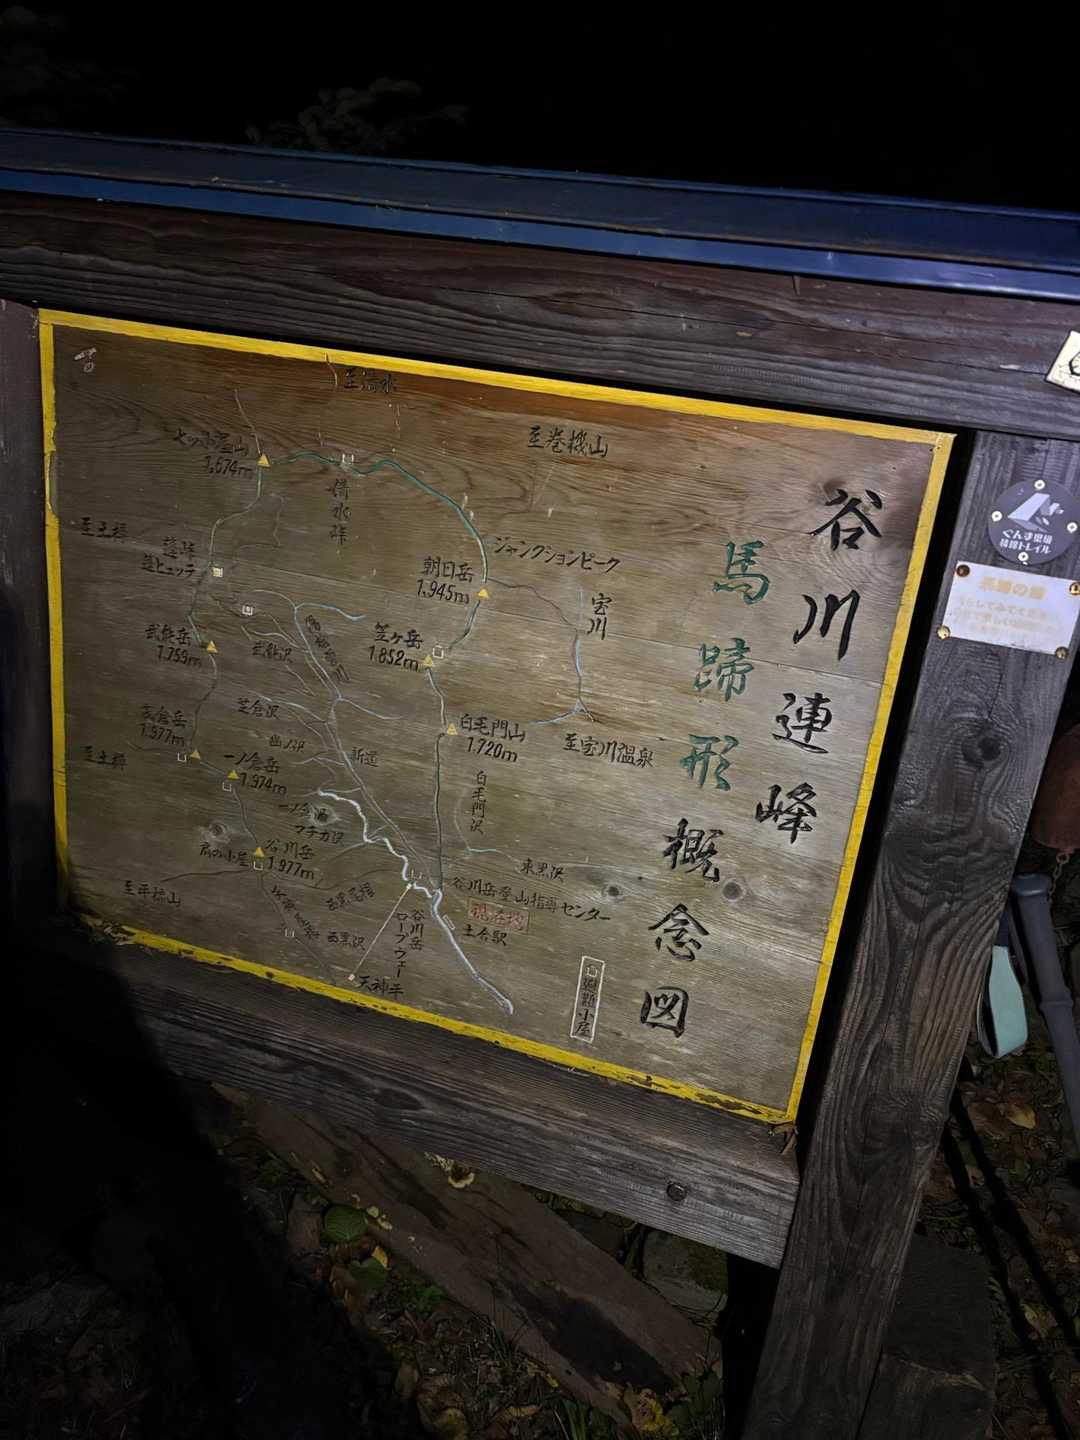 谷川連峰
馬蹄形概念図
至清水
至巻機山
七ッ小屋山
1,674m
清水峠
ジャンクションピーク
至土樽
蓬峠
蓬ヒュッテ
朝日岳
1,945m
宝川
笠ヶ岳
1,852m
武能岳
1,759m
武能沢
白毛門山
1,720m
至宝川温泉
茂倉岳
1,977m
芝倉沢
幽ノ沢
新道
至土樽
一ノ倉岳
1,974m
一ノ倉沢
マチガ沢
白毛門沢
谷川岳
1,977m
肩の小屋
東黒沢
至平標山
西黒尾根
西黒沢
谷川岳ロープウェー
天神平
谷川岳登山指導センター
現在地
土合駅
避難小屋
ぐんま県境
稜線トレイル